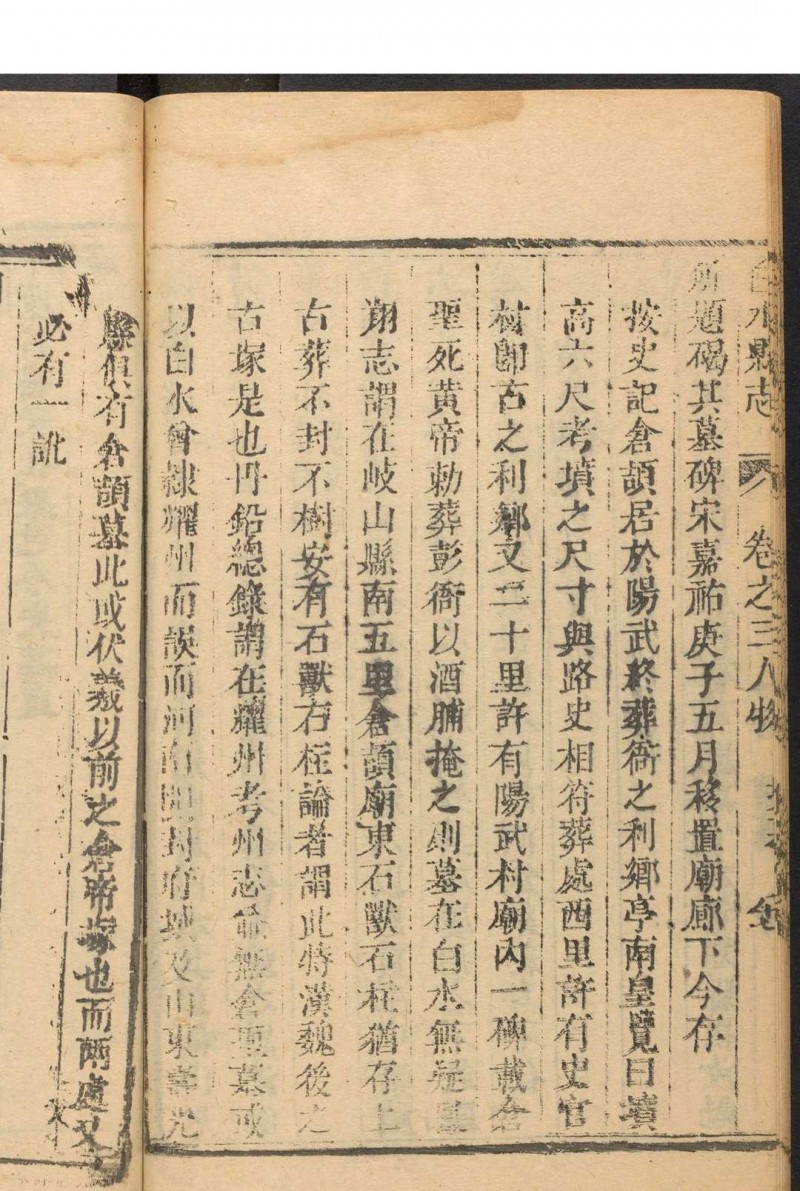 白水縣志 卷之三人物
所題碣其墓碑宋嘉祐庚子五月移置廟廊下今存
按史記倉頡居於陽武終葬衙之利鄉亭南皇覽曰墳
高六尺考墳之尺寸與路史相符葬處西里許有史官
村卽古之利鄉又二十里許有陽武村廟內一碑載倉
聖死黃帝勅葬彭衙以酒脯掩之則墓在白水無疑
翔志謂在岐山縣南五里倉頡廟東石獸石柱猶存
古葬不封不樹安有石獸石柱論者謂此特漢魏後之
古塚是也丹鉛總錄謂在耀州考州志並無倉聖墓或
以白水曾隸耀州而誤而河南開封府城及山東壽光
縣俱有倉頡墓此或伏羲以前之倉帝塚也而兩處又
必有一訛